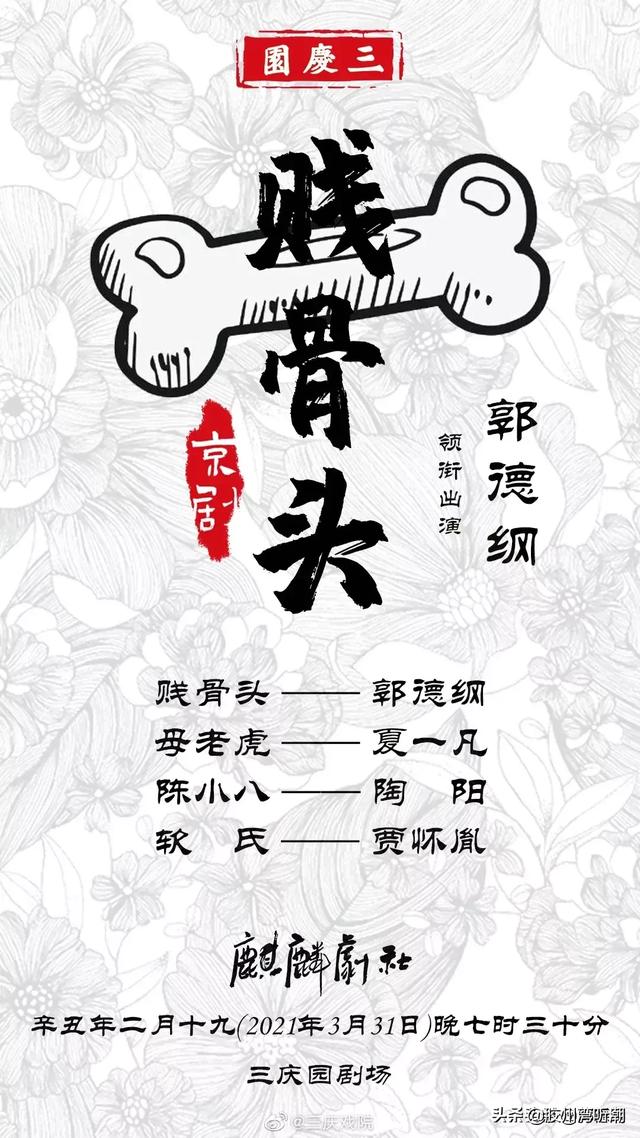 園慶三
贱骨头
京剧
郭德纲
领衔出演
贱骨头——郭德纲
母老虎——夏一凡
陈小八——陶 阳
软 氏——贾怀胤
麒麟劇社
辛丑年二月十九(2021年3月31日)晚七时三十分
三庆园剧场
@三庆戏院
头条@胶州湾听潮